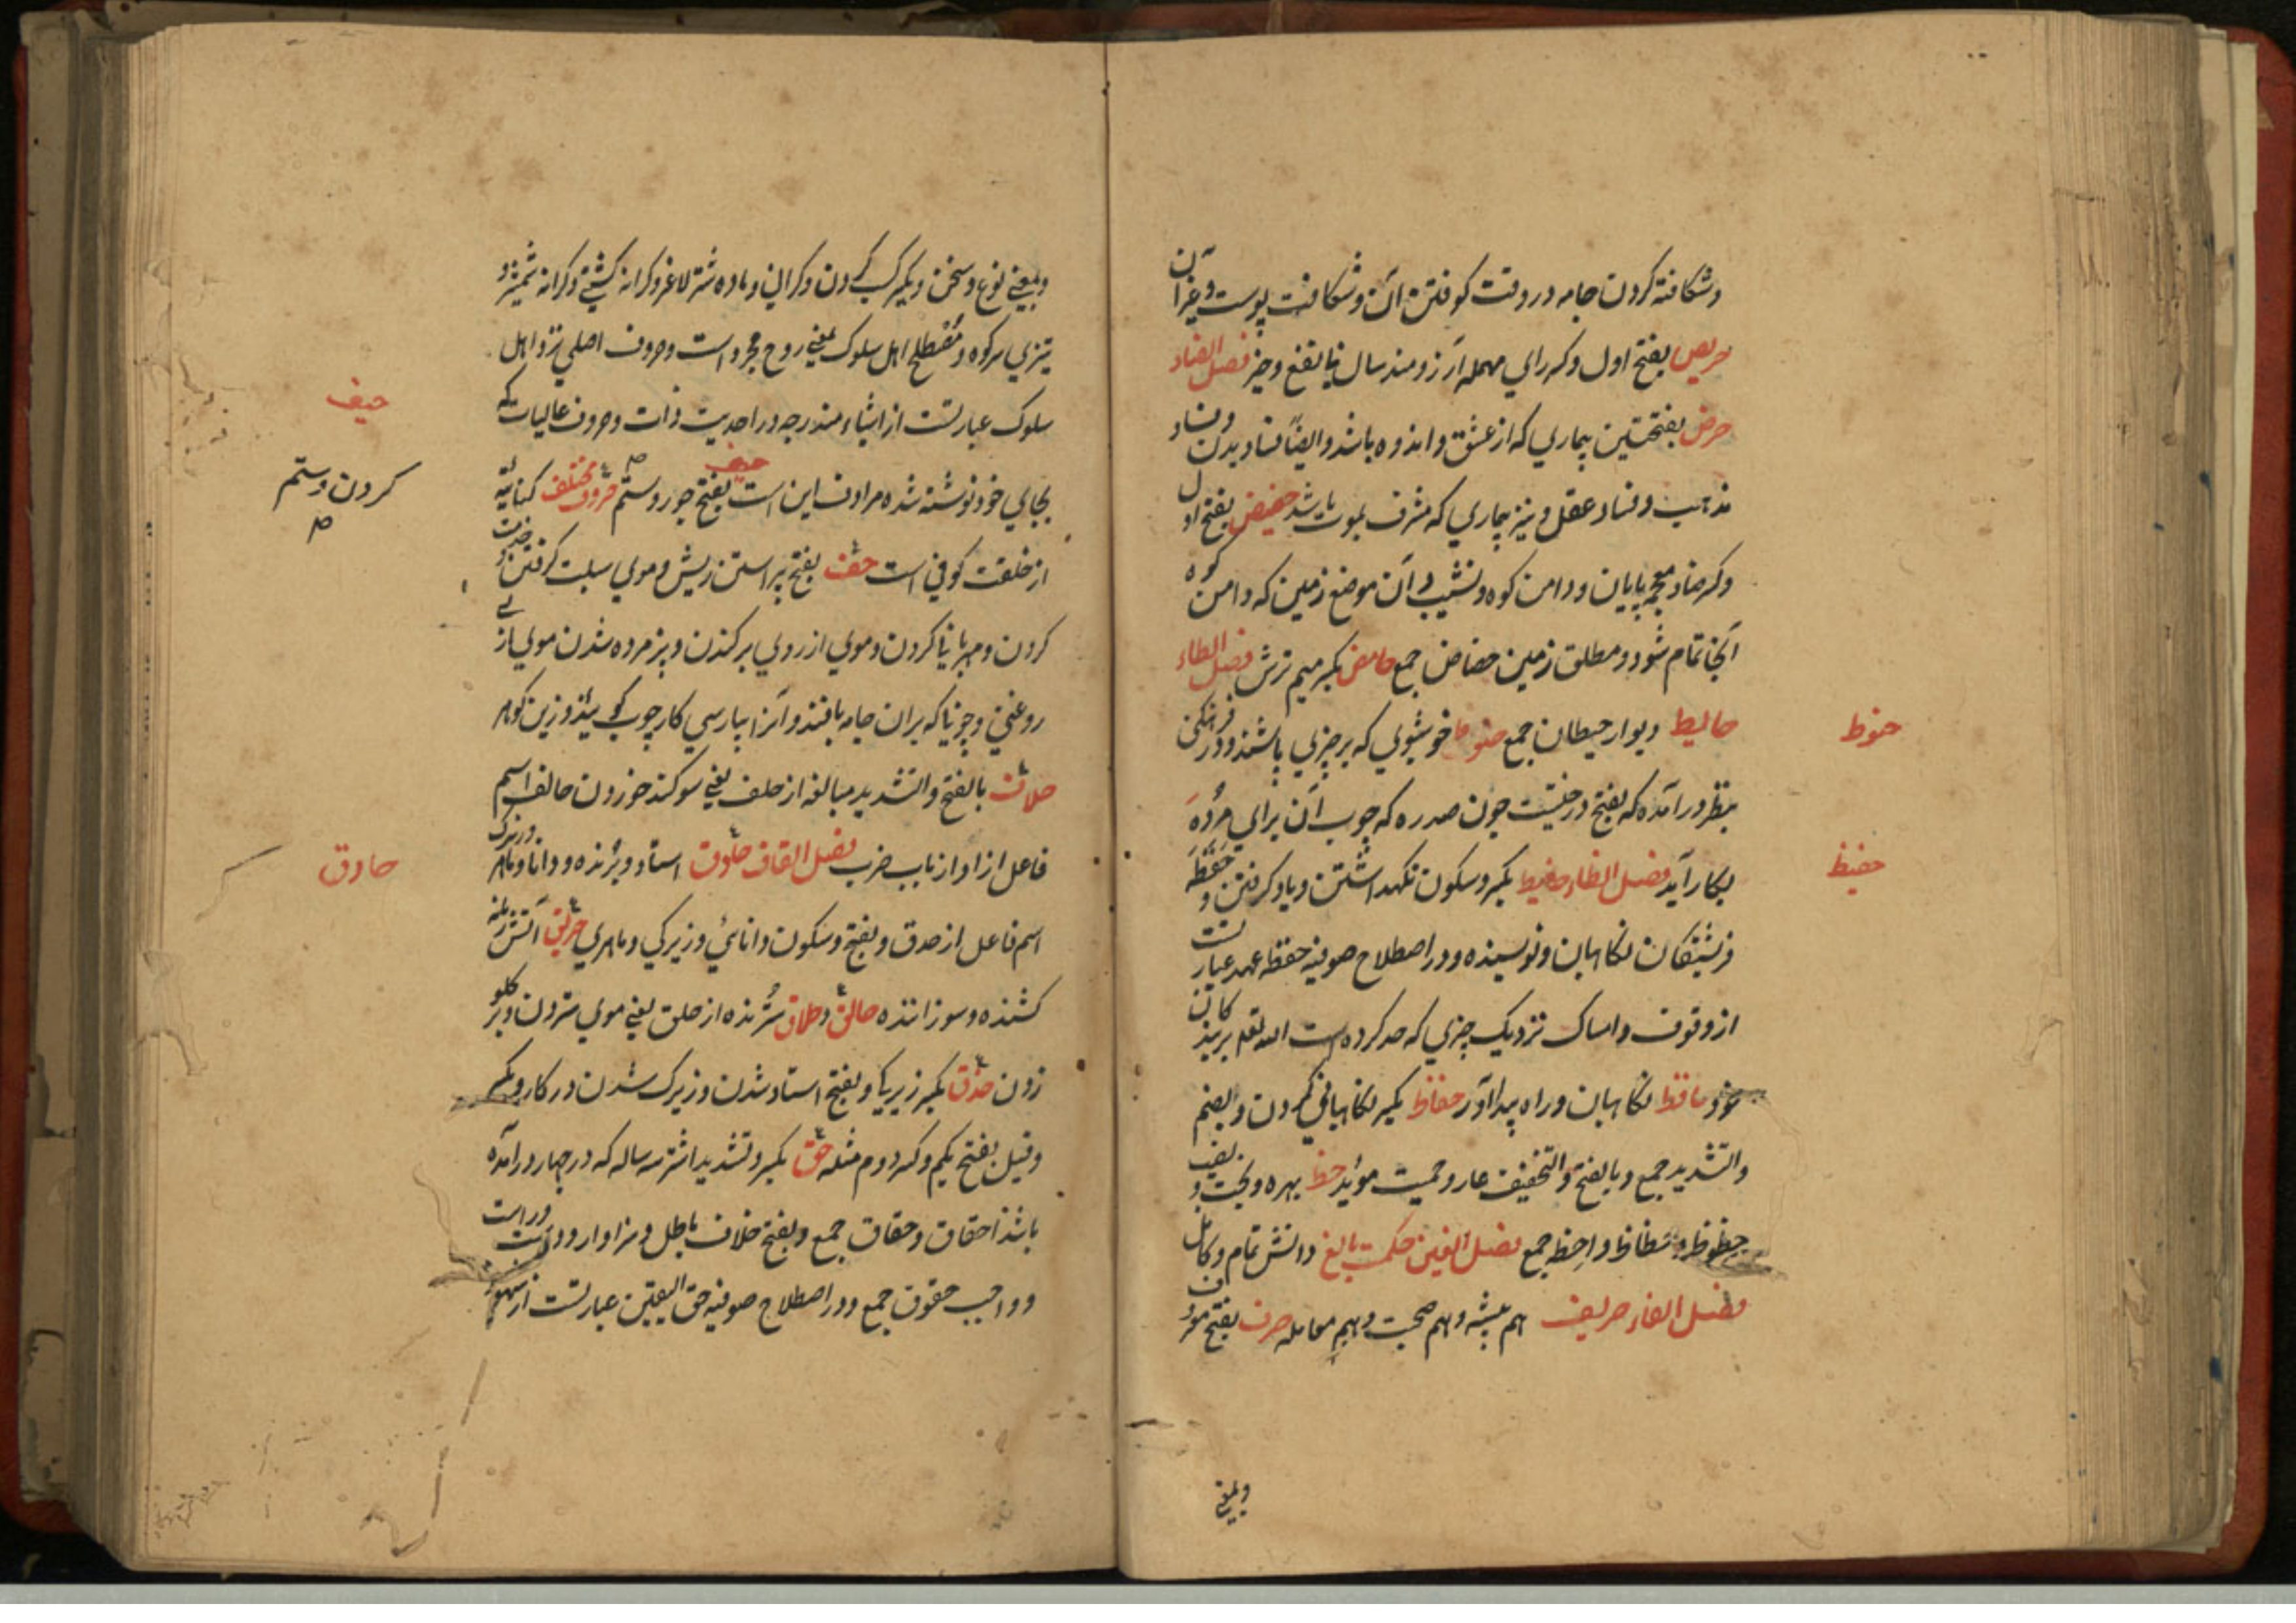 وشکافته کردن جامه در وقت کوفتن آن و شکافتن پوست و غیر آن
حریص بفتح اول و کسر رای مهمله آرزومند فصل الضاد
حرض بفتحتین بیماری که از عشق و اندوه باشد و ایضاً فساد بدن و فساد
مذهب و فساد عقل و نیز بیماری که مشرف بموت باشد حضیض بفتح اول
و کسر ضاد معجمه پایان و دامن کوه و نشیب و آن موضع زمین که دامن کوه
آنجا تمام شود و مطلق زمین حضاض جمع حامض بکسر میم ترش فصل الطاء
حایط دیوار حیطان جمع حنوط خوشبوی که بر چیزی پاشند و در فرهنگی
حنوط
بنظر درآمده که بفتح درختیست چون صدره که چوب آن برای مرده
بکار آید فصل الظاء حفیظ بکسر و سکون نگهداشتن و یاد گرفتن و حفظه
حفیظ
فرشتگان نگاهبان و نویسنده و در اصطلاح صوفیه حفظه عهد عبارتست
از وقوف و امساک نزدیک چیزی که حد کرده است الله تعلی بر بندکان
خود حافظ نگاهبان و راه پیدا آور حفاظ بکسر نگاهبانی کردن و بضم
والتشدید جمع و بالفتح و التخفیف عار و حمیت مؤید حظ بهره و بخت و نصیب
حظوظ و حظاظ و احظ جمع فصل الغین حکمت بالغ دانش تمام و کامل
فصل الفاء حریف هم پیشه و هم صحبت و هم معامله حرف بفتح
وبمعنی
وبمعنی نوع و سخن و بکسر کسب کردن و ماده شتر لاغر و کرانه کشتی و کرانه شمشیر و
تیزی سر کوه و مصطلح اهل سلوک بمعنی روح مجرد است و حروف اصلی نزد اهل
سلوک عبارتست از اشیاء مندرجه در احدیت ذات و حروف عالیات که
حیف
بجای خود نوشته شده مرادف این است حیف بفتح جور و ستم حروف مختلف کنایة
کردن و ستم
از خلقت کوفی است حف بفتح پیراستن ریش و موی سبلت گرفتن و خدمت
کردن و مهربانی کردن و موی از روی برکندن و پژمرده شدن موی از بی
روغنی و چوبی که بران جامه بافند و آنرا بپارسی کارچوب گویند و زین کوهه
حلاف بالفتح والتشدید مبالغه از حلف یعنی سوگند خوردن حالف اسم
فاعل از او از باب ضرب فصل القاف حاذق استاد و برنده و دانا و ماهر و زیرک
حاذق
اسم فاعل از حذق و بفتح و سکون دانائی و زیرکی و ماهری حریق آتش
کشنده و سوزاننده حالق و حلاق سترنده از حلق یعنی موی ستردن و بر گلو
زدن حذق بکسر زیرکی و بفتح استاد شدن و زیرک شدن در کار و بکسر
و قیل بفتح یکم و کسر دوم مثله حق بکسر و تشدید اشتر سه ساله که در چهار درآمده
باشد احقاق و حقاق جمع و بفتح خلاف باطل و سزاوار و درست و راست
و واجب حقوق جمع و در اصطلاح صوفیه حق الیقین عبارتست از شهود